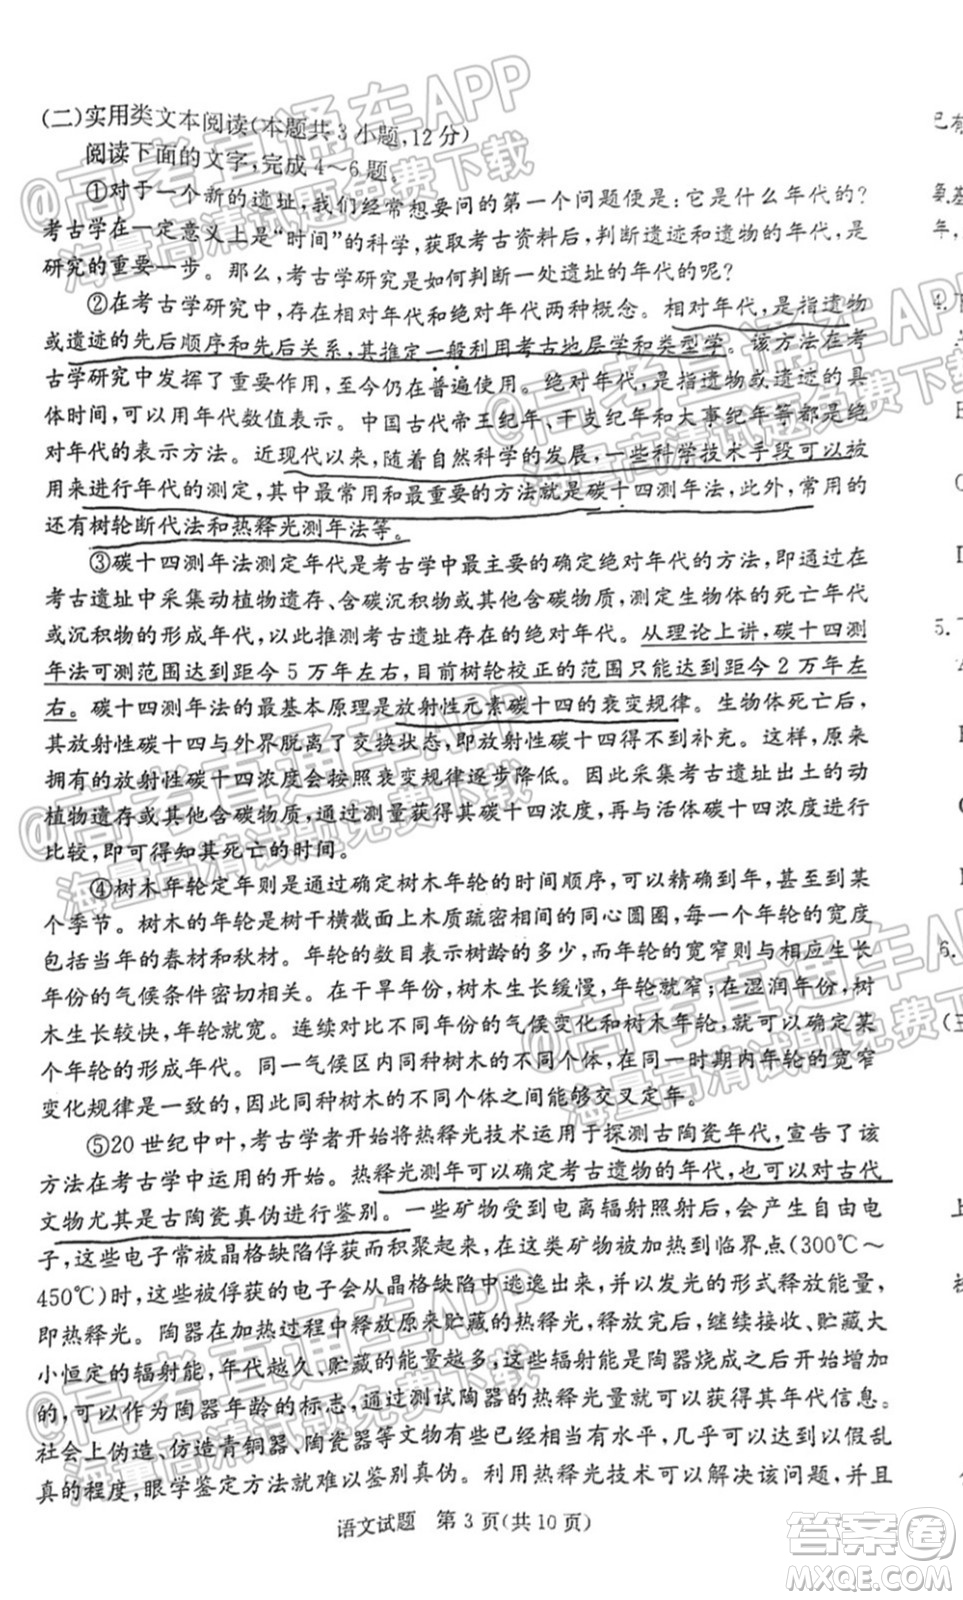 (二)实用类文本阅读(本题共3小题,12分)
阅读下面的文字,完成4～6题。
①对于一个新的遗址,我们经常想要问的第一个问题便是:它是什么年代的?
考古学在一定意义上是“时间”的科学,获取考古资料后,判断遗迹和遗物的年代,是
研究的重要一步。那么,考古学研究是如何判断一处遗址的年代的呢?
②在考古学研究中,存在相对年代和绝对年代两种概念。相对年代,是指遗物
或遗迹的先后顺序和先后关系,其推定一般利用考古地层学和类型学。该方法在考
古学研究中发挥了重要作用,至今仍在普遍使用。绝对年代,是指遗物或遗迹的具
体时间,可以用年代数值表示。中国古代帝王纪年、干支纪年和大事纪年等都是绝
对年代的表示方法。近现代以来,随着自然科学的发展,一些科学技术手段可以被
用来进行年代的测定,其中最常用和最重要的方法就是碳十四测年法,此外,常用的
还有树轮断代法和热释光测年法等。
③碳十四测年法测定年代是考古学中最主要的确定绝对年代的方法,即通过在
考古遗址中采集动植物遗存、含碳沉积物或其他含碳物质,测定生物体的死亡年代
或沉积物的形成年代,以此推测考古遗址存在的绝对年代。从理论上讲,碳十四测
年法可测范围达到距今5万年左右,目前树轮校正的范围只能达到距今2万年左
右。碳十四测年法的最基本原理是放射性元素碳十四的衰变规律。生物体死亡后,
其放射性碳十四与外界脱离了交换状态,即放射性碳十四得不到补充。这样,原来
拥有的放射性碳十四浓度会按照衰变规律逐步降低。因此采集考古遗址出土的动
植物遗存或其他含碳物质,通过测量获得其碳十四浓度,再与活体碳十四浓度进行
比较,即可得知其死亡的时间。
④树木年轮定年则是通过对树木年轮的时间顺序,可以精确到年,甚至到某
个季节。树木的年轮是树干横截面上木质疏密相间的同心圆圈,每一个年轮的宽度
包括当年的春材和秋材。年轮的数目表示树龄的多少,而年轮的宽窄则与相应生长
年份的气候条件密切相关。在干旱年份,树木生长缓慢,年轮就窄;在湿润年份,树
木生长较快,年轮就宽。连续对比不同年份的气候变化和树木年轮,就可以确定某
个年轮的形成年代。同一气候区内同种树木的不同个体,在同一时期内年轮的宽窄
变化规律是一致的,因此同种树木的不同个体之间能够交叉定年。
⑤20世纪中叶,考古学者开始将热释光技术运用于探测古陶瓷年代,宣告了该
方法在考古学中运用的开始。热释光测年可以确定考古遗物的年代,也可以对古代
文物尤其是古陶瓷真伪进行鉴别。一些矿物受到电离辐射照射后,会产生自由电
子,这些电子常被晶格缺陷俘获而积聚起来,在这类矿物被加热到临界点(300℃～
450℃)时,这些被俘获的电子会从晶格缺陷中逃逸出来,并以发光的形式释放能量,
即热释光。陶器在加热过程中释放原来贮藏的能量,释放完后,继续接收、贮藏大
小恒定的辐射能,年代越久、贮藏的能量越多,这些辐射能是陶器烧成之后开始贮藏
的,可以作为陶器年龄的标志,通过测试陶器的热释光量就可以获得其年代信息。
社会上伪造、仿造青铜器、陶瓷器等文物有些已经相当有水平,几乎可以达到以假乱
真的程度,眼学鉴定方法就难以鉴别真伪。利用热释光技术可以解决该问题,并且
语文试题 第3页(共10页)
已有
年,
4.
5.
6.
@高考直通车APP
海量高清试题免费下载
答案圈
MXQE.COM